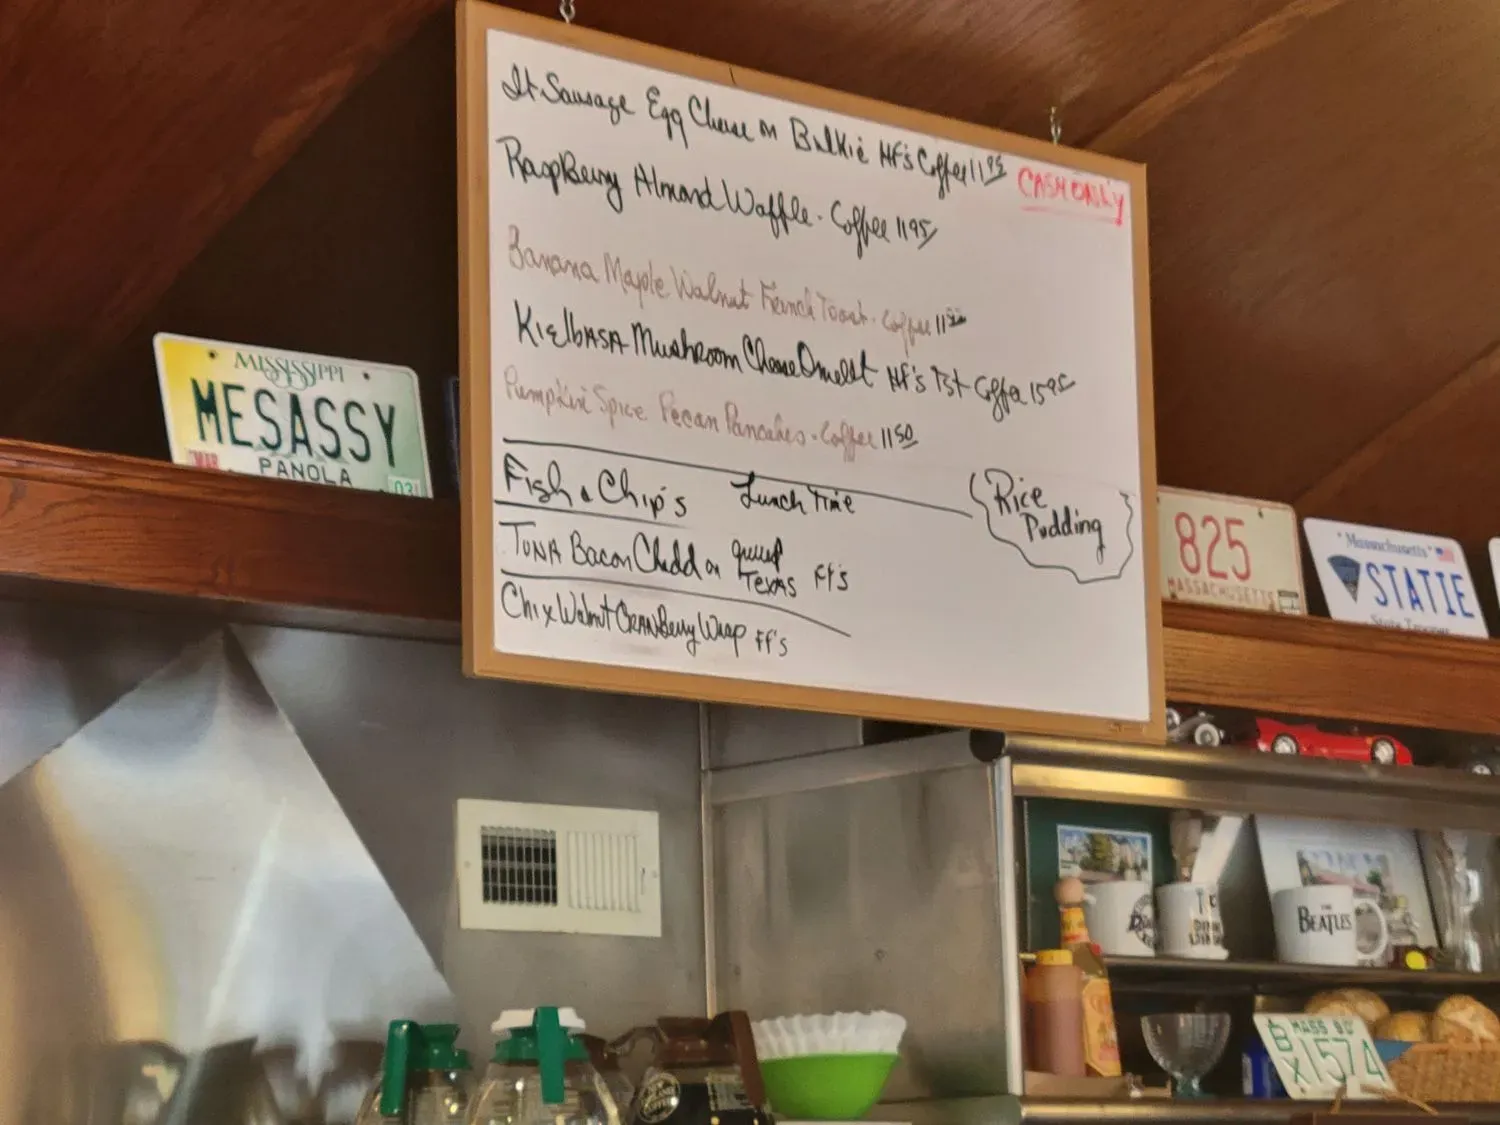 It Sausage Egg Cheese on Bulkie HF's Coffee 11 95
CASH ONLY
Raspberry Almond Waffle - Coffee 11 95
Banana Maple Walnut French Toast - Coffee 11
Kielbasa Mushroom Cheese Omelet HF's Tst Coffee 15 95
Pumpkin Spice Pecan Pancakes - Coffee 11 50
Fish & Chip's Lunch Time
Rice
Pudding
Tuna Bacon Chedd on grilled
Texas FF's
Chix Walnut Cranberry Wrap FF's
MISSISSIPPI
MESASSY
MAR PANOLA 03
825
MASSACHUSETTS
Massachusetts
STATIE
State Trooper
THE
BEATLES
MASS 90
BX1574